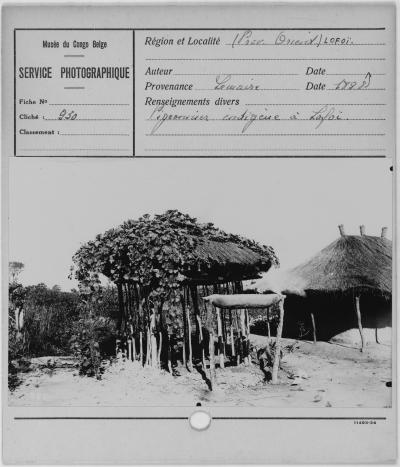 Musée du Congo Belge
SERVICE PHOTOGRAPHIQUE
Fiche No
Cliché : 950
Classement :
Région et Localité (Prov. Orient.) LOFOÏ.
Auteur Date
Provenance Lemaire Date
Renseignements divers
Pigeonnier indigène à Lofoï.
11460-34